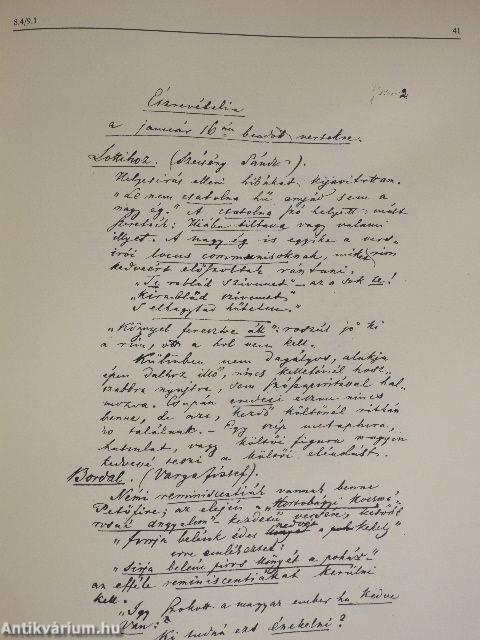 8.4/9.1
41
2
Észrevételeim
a január 16án beadott versekre.
Lottihoz. (Szécsény Sándor).
Helyesirás elleni hibákat kijavitottam.
"De nem csatolna hű anyád sem a
nagy ég." A csatolna szó helyett mást
Hiába tiltana vagy valami
illyet. A nagy ég is egyike a vers
irói locus communisoknak, miket rim
kedveért előszoktak rántani.
"Te rablád szivemet" – az a sok te!
"Kirablád szivemet,
S elhagytad hütelen."
"Könnyel feresztve át": roszúl jő ki
a rim, a hol nem kell.
Különben nem dagályos, alakja
épen dalhoz illő, nincs kelleténél hosz-
szabbra nyujtva, sem szószaporitással hal-
mozva. Csupán eredeti eszme nincs
benne, de azt, kezdő költőnél ritkán
is találunk. – Egy szép metaphora,
hasonlat, vagy költői figura nagyon
kedvessé teszi a költői előadást.
Bordal. (Varga József).
Némi reminiscentiák vannak benne
Petőfire; az elején a "Hortobágyi kocsma,
angyalom" kezdetü versére, később
"Jurja belénk édes nedvét a kehely"
erre emlékeztet:
"Sirja belém piros könyét a pohár"
az efféle reminiscentiákat kerülni
kell.
"Igy szokott a magyar ember ha kedve
van:"?
Ki tudná ezt énekelni?
Antikvárium.hu